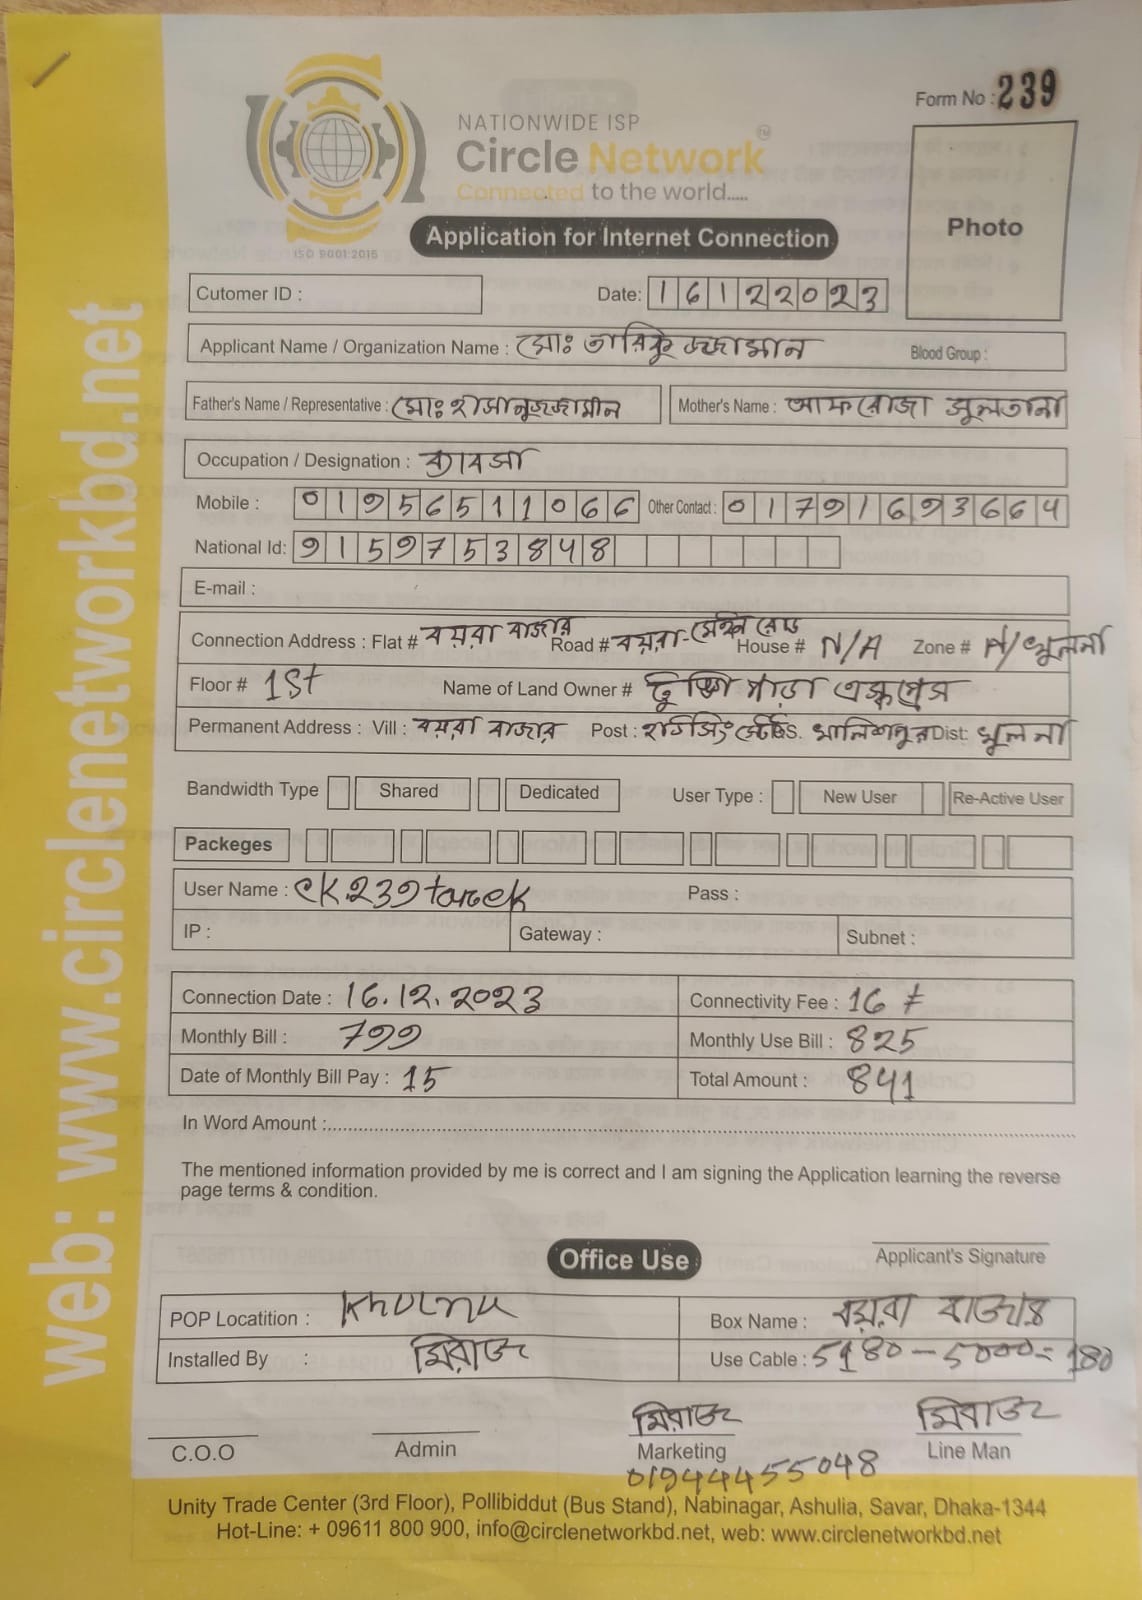 Form No : 239
NATIONWIDE ISP
Circle Network
Connected to the world.....
ISO 9001:2015
Application for Internet Connection
Photo
Cutomer ID :
Date: 16122023
Applicant Name / Organization Name : মোঃ তারিকুজ্জামান Blood Group :
Father's Name / Representative : মোঃ হাসানুজ্জামান Mother's Name : আফরোজা সুলতানা
Occupation / Designation : ব্যবসা
Mobile : 01956511066 Other Contact : 01791693664
National Id: 9159753848
E-mail :
Connection Address : Flat # বয়রা বাজার Road # বয়রা-মেইন রোড House # N/A Zone # খুলনা
Floor # 1st Name of Land Owner # টুঙ্গি পাড়া এক্সপ্রেস
Permanent Address : Vill : বয়রা বাজার Post : S. খালিশপুর Dist: খুলনা
Bandwidth Type Shared Dedicated User Type : New User Re-Active User
Packeges
User Name : ck.239tarek Pass :
IP : Gateway : Subnet :
Connection Date : 16.12.2023 Connectivity Fee : 16
Monthly Bill : 799 Monthly Use Bill : 825
Date of Monthly Bill Pay : 15 Total Amount : 841
In Word Amount :
The mentioned information provided by me is correct and I am signing the Application learning the reverse
page terms & condition.
Applicant's Signature
Office Use
POP Locatition : Khulna Box Name : বয়রা বাজার
Installed By : মিরাজ Use Cable : 5180-5000=180
মিরাজ মিরাজ
C.O.O Admin Marketing Line Man
01944455048
Unity Trade Center (3rd Floor), Pollibiddut (Bus Stand), Nabinagar, Ashulia, Savar, Dhaka-1344
Hot-Line: + 09611 800 900, info@circlenetworkbd.net, web: www.circlenetworkbd.net
web: www.circlenetworkbd.net